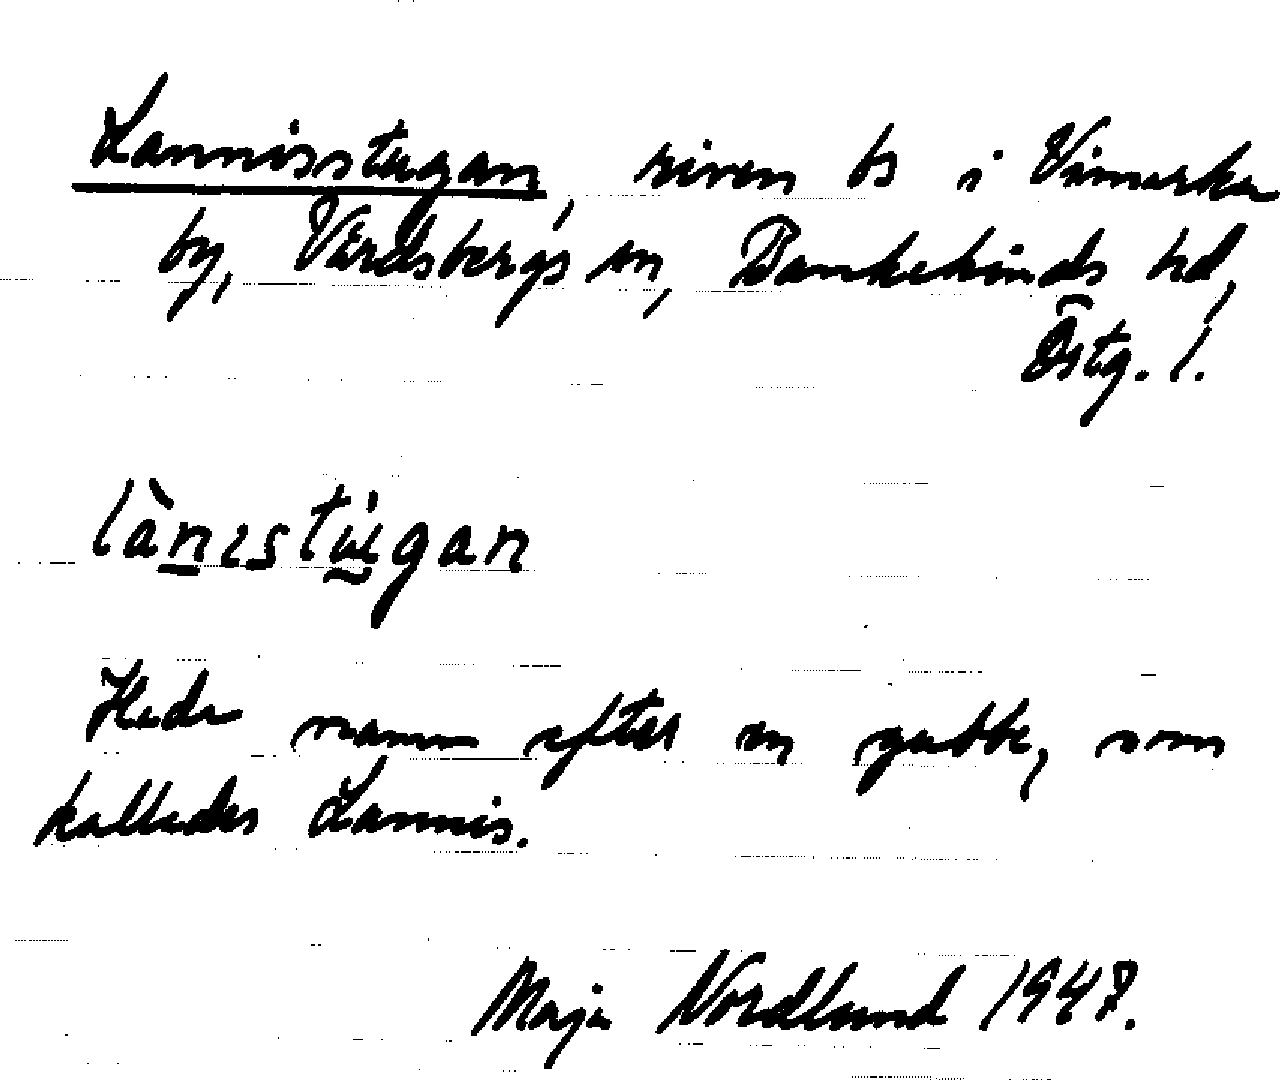 Lannisstugan, riven bs i Vimarka
by, Vårdsbergs sn, Bankekinds hd,
Östg. l.
lànɪstùgan
Hade namn efter en gubbe, som
kallades Lannis.
Maja Nordlund 1947.